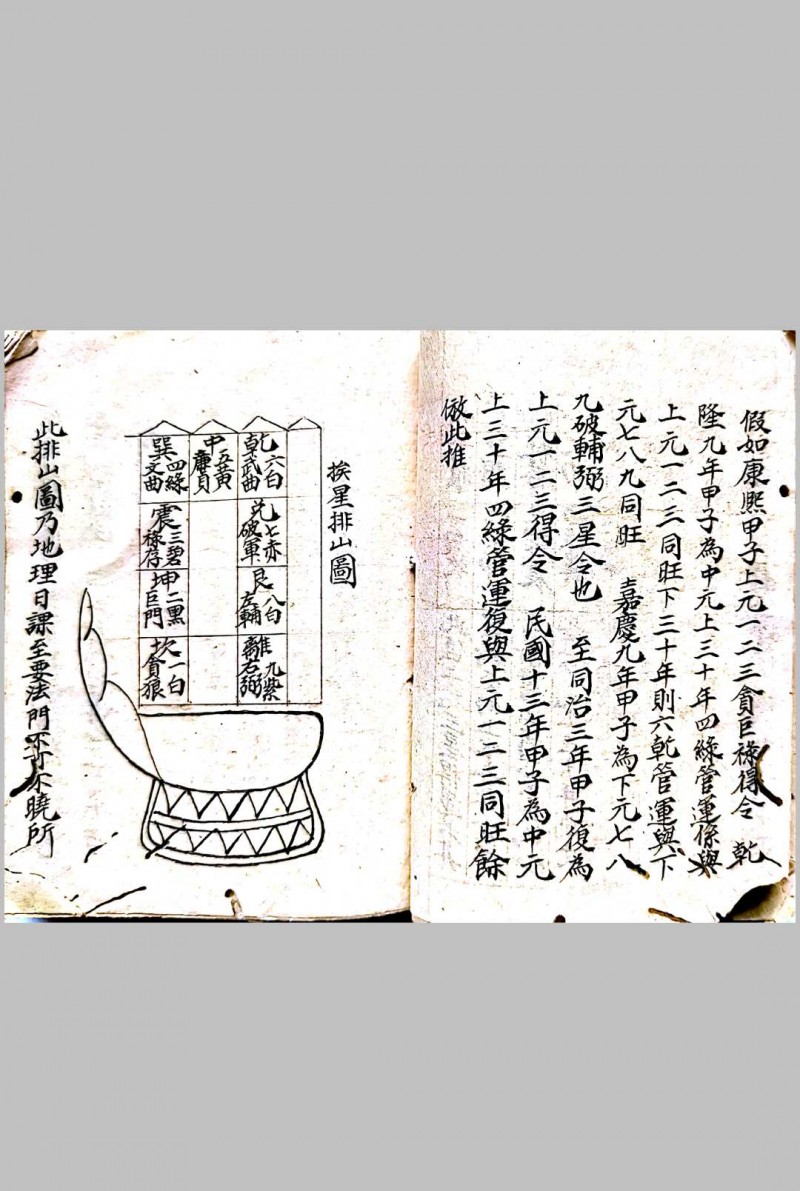 假如康熙甲子上元一二三貪巨祿得令　乾
隆九年甲子為中元上三十年四綠管運係與
上元一二三同旺下三十年則六乾管運與下
元七八九同旺　嘉慶九年甲子為下元七八
九破輔弼三星令也　至同治三年甲子復為
上元一二三得令　民國十三年甲子為中元
上三十年四綠管運復與上元一二三同旺餘
倣此推
挨星排山圖
六白
乾武曲
七赤
兌破軍
八白
艮左輔
九紫
離右弼
五黃
中廉貞
四綠
巽文曲
三碧
震祿存
二黑
坤巨門
一白
坎貪狼
此排山圖乃地理日課至要法門不可不曉所